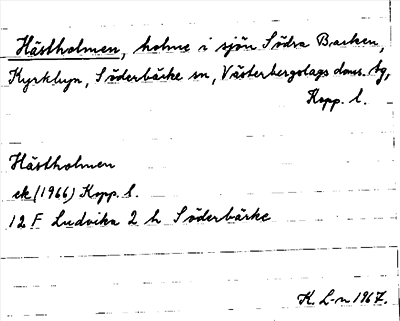 Hästholmen, holme i sjön Södra Barken,
Kyrkbyn, Söderbärke sn, Västerbergslags doms. tg,
Kopp. l.
Hästholmen
ek (1966) Kopp. l.
12 F Ludvika 2 h Söderbärke
K. L-n 1967.